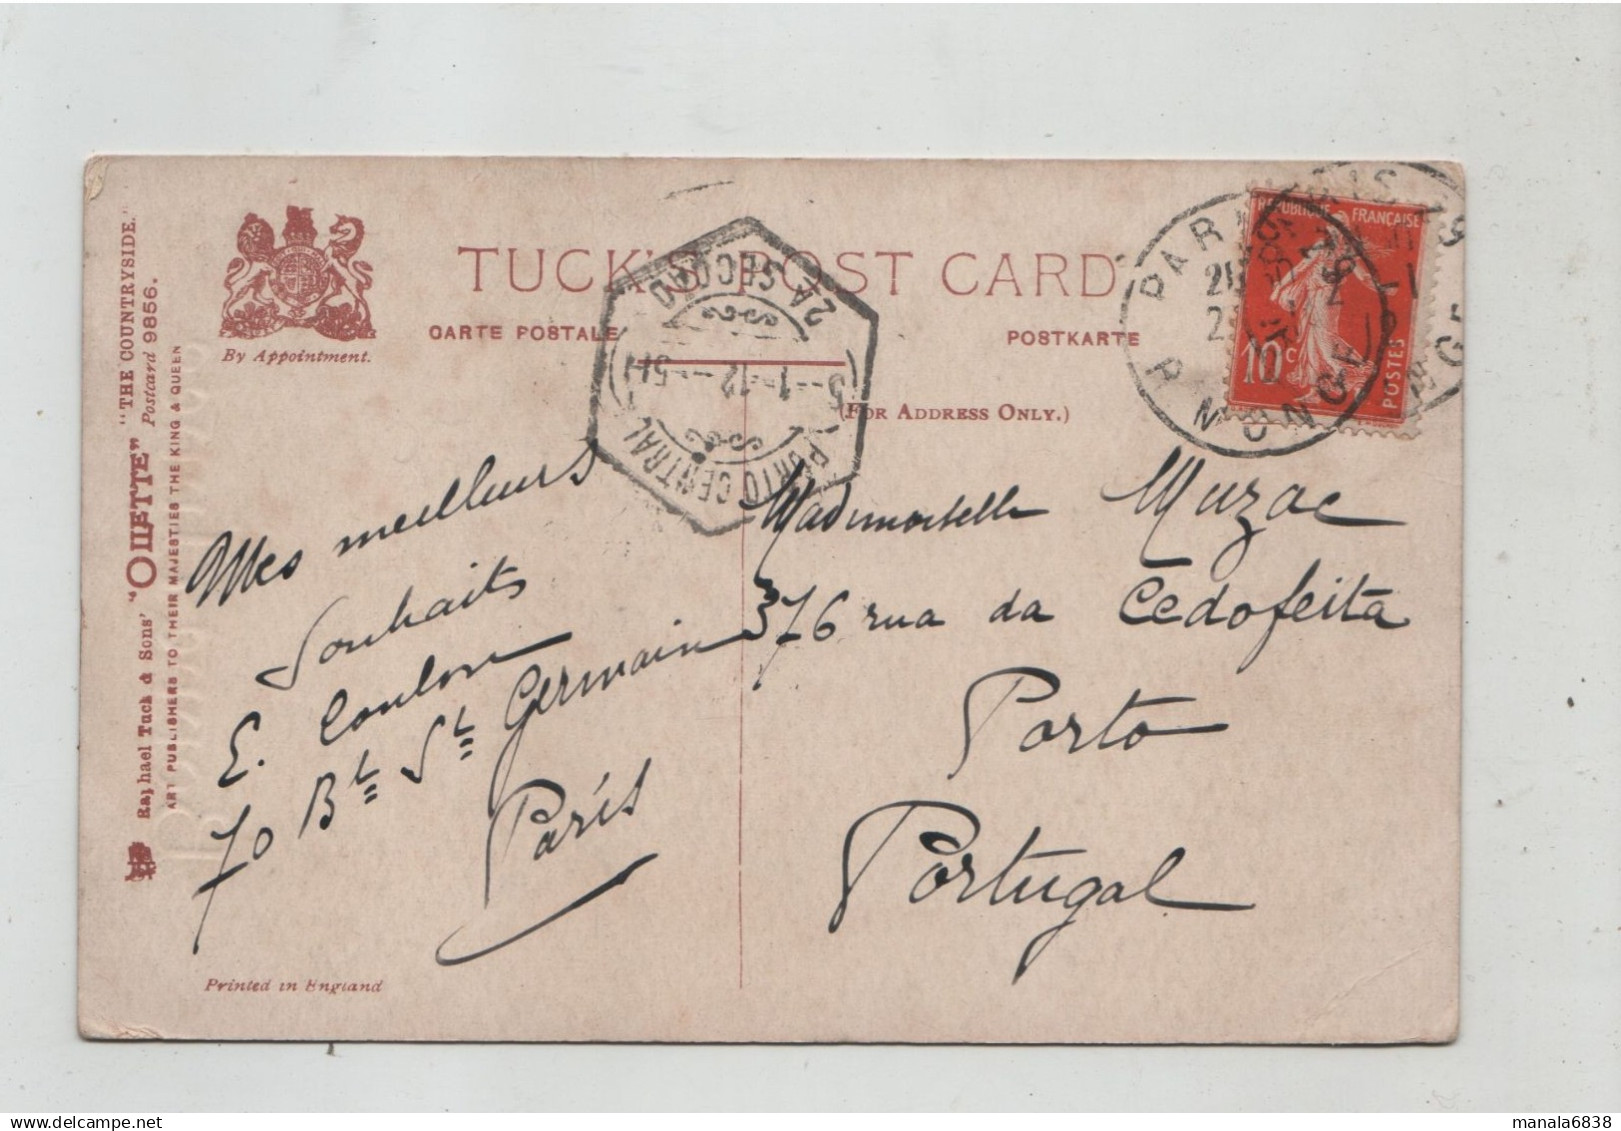 TUCK'S POST CARD
CARTE POSTALE
POSTKARTE
(FOR ADDRESS ONLY.)
By Appointment.
Raphael Tuck & Sons' "OILETTE" "THE COUNTRYSIDE."
Postcard 9856.
ART PUBLISHERS TO THEIR MAJESTIES THE KING & QUEEN
2A SECCÃO
5-1-12-5
PORTO CENTRAL
PARIS
R MONGE
REPUBLIQUE FRANÇAISE
10c
POSTES
Mes meilleurs
Souhaits
E. Coulon
70 Bt St Germain
Paris
Mademoiselle Muzac
376 rua da Cedofeita
Porto
Portugal
Printed in England
manala6838